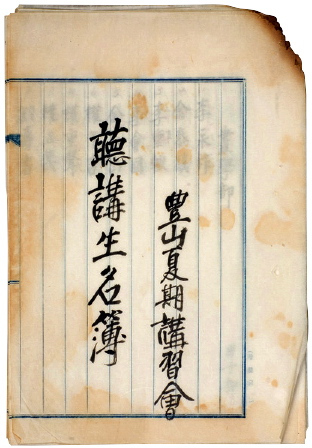 豊山夏期講習會
聽講生名簿